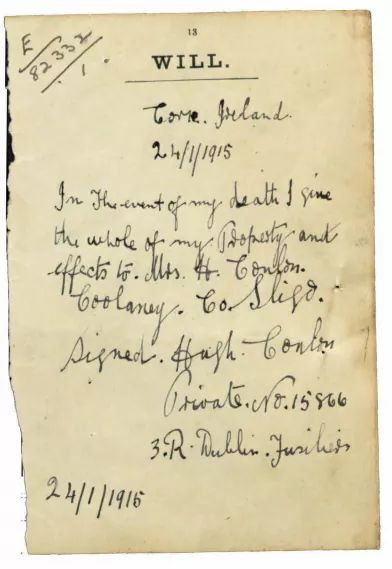 13
E
82332
1
WILL.
Cork. Ireland.
24/1/1915
In The event of my death I give
the whole of my Property and
effects to. Mrs. H. Conlon.
Coolaney. Co. Sligo.
Signed. Hugh. Conlon
Private. No. 15866
3. R. Dublin. Fusiliers
24/1/1915